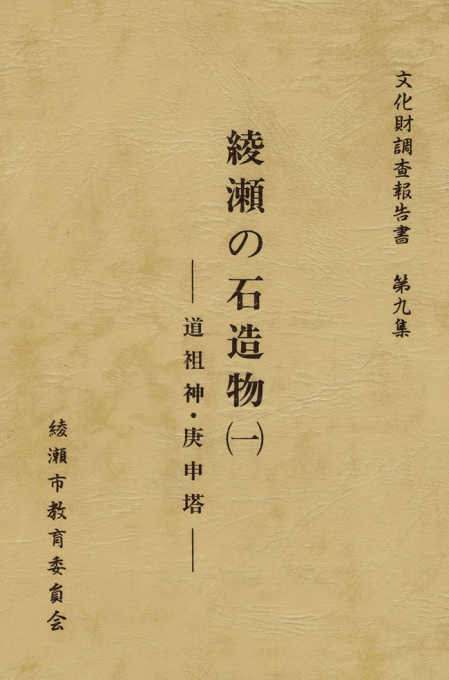 文化財調査報告書　第九集
綾瀬の石造物㈠
―道祖神・庚申塔―
綾瀬市教育委員会